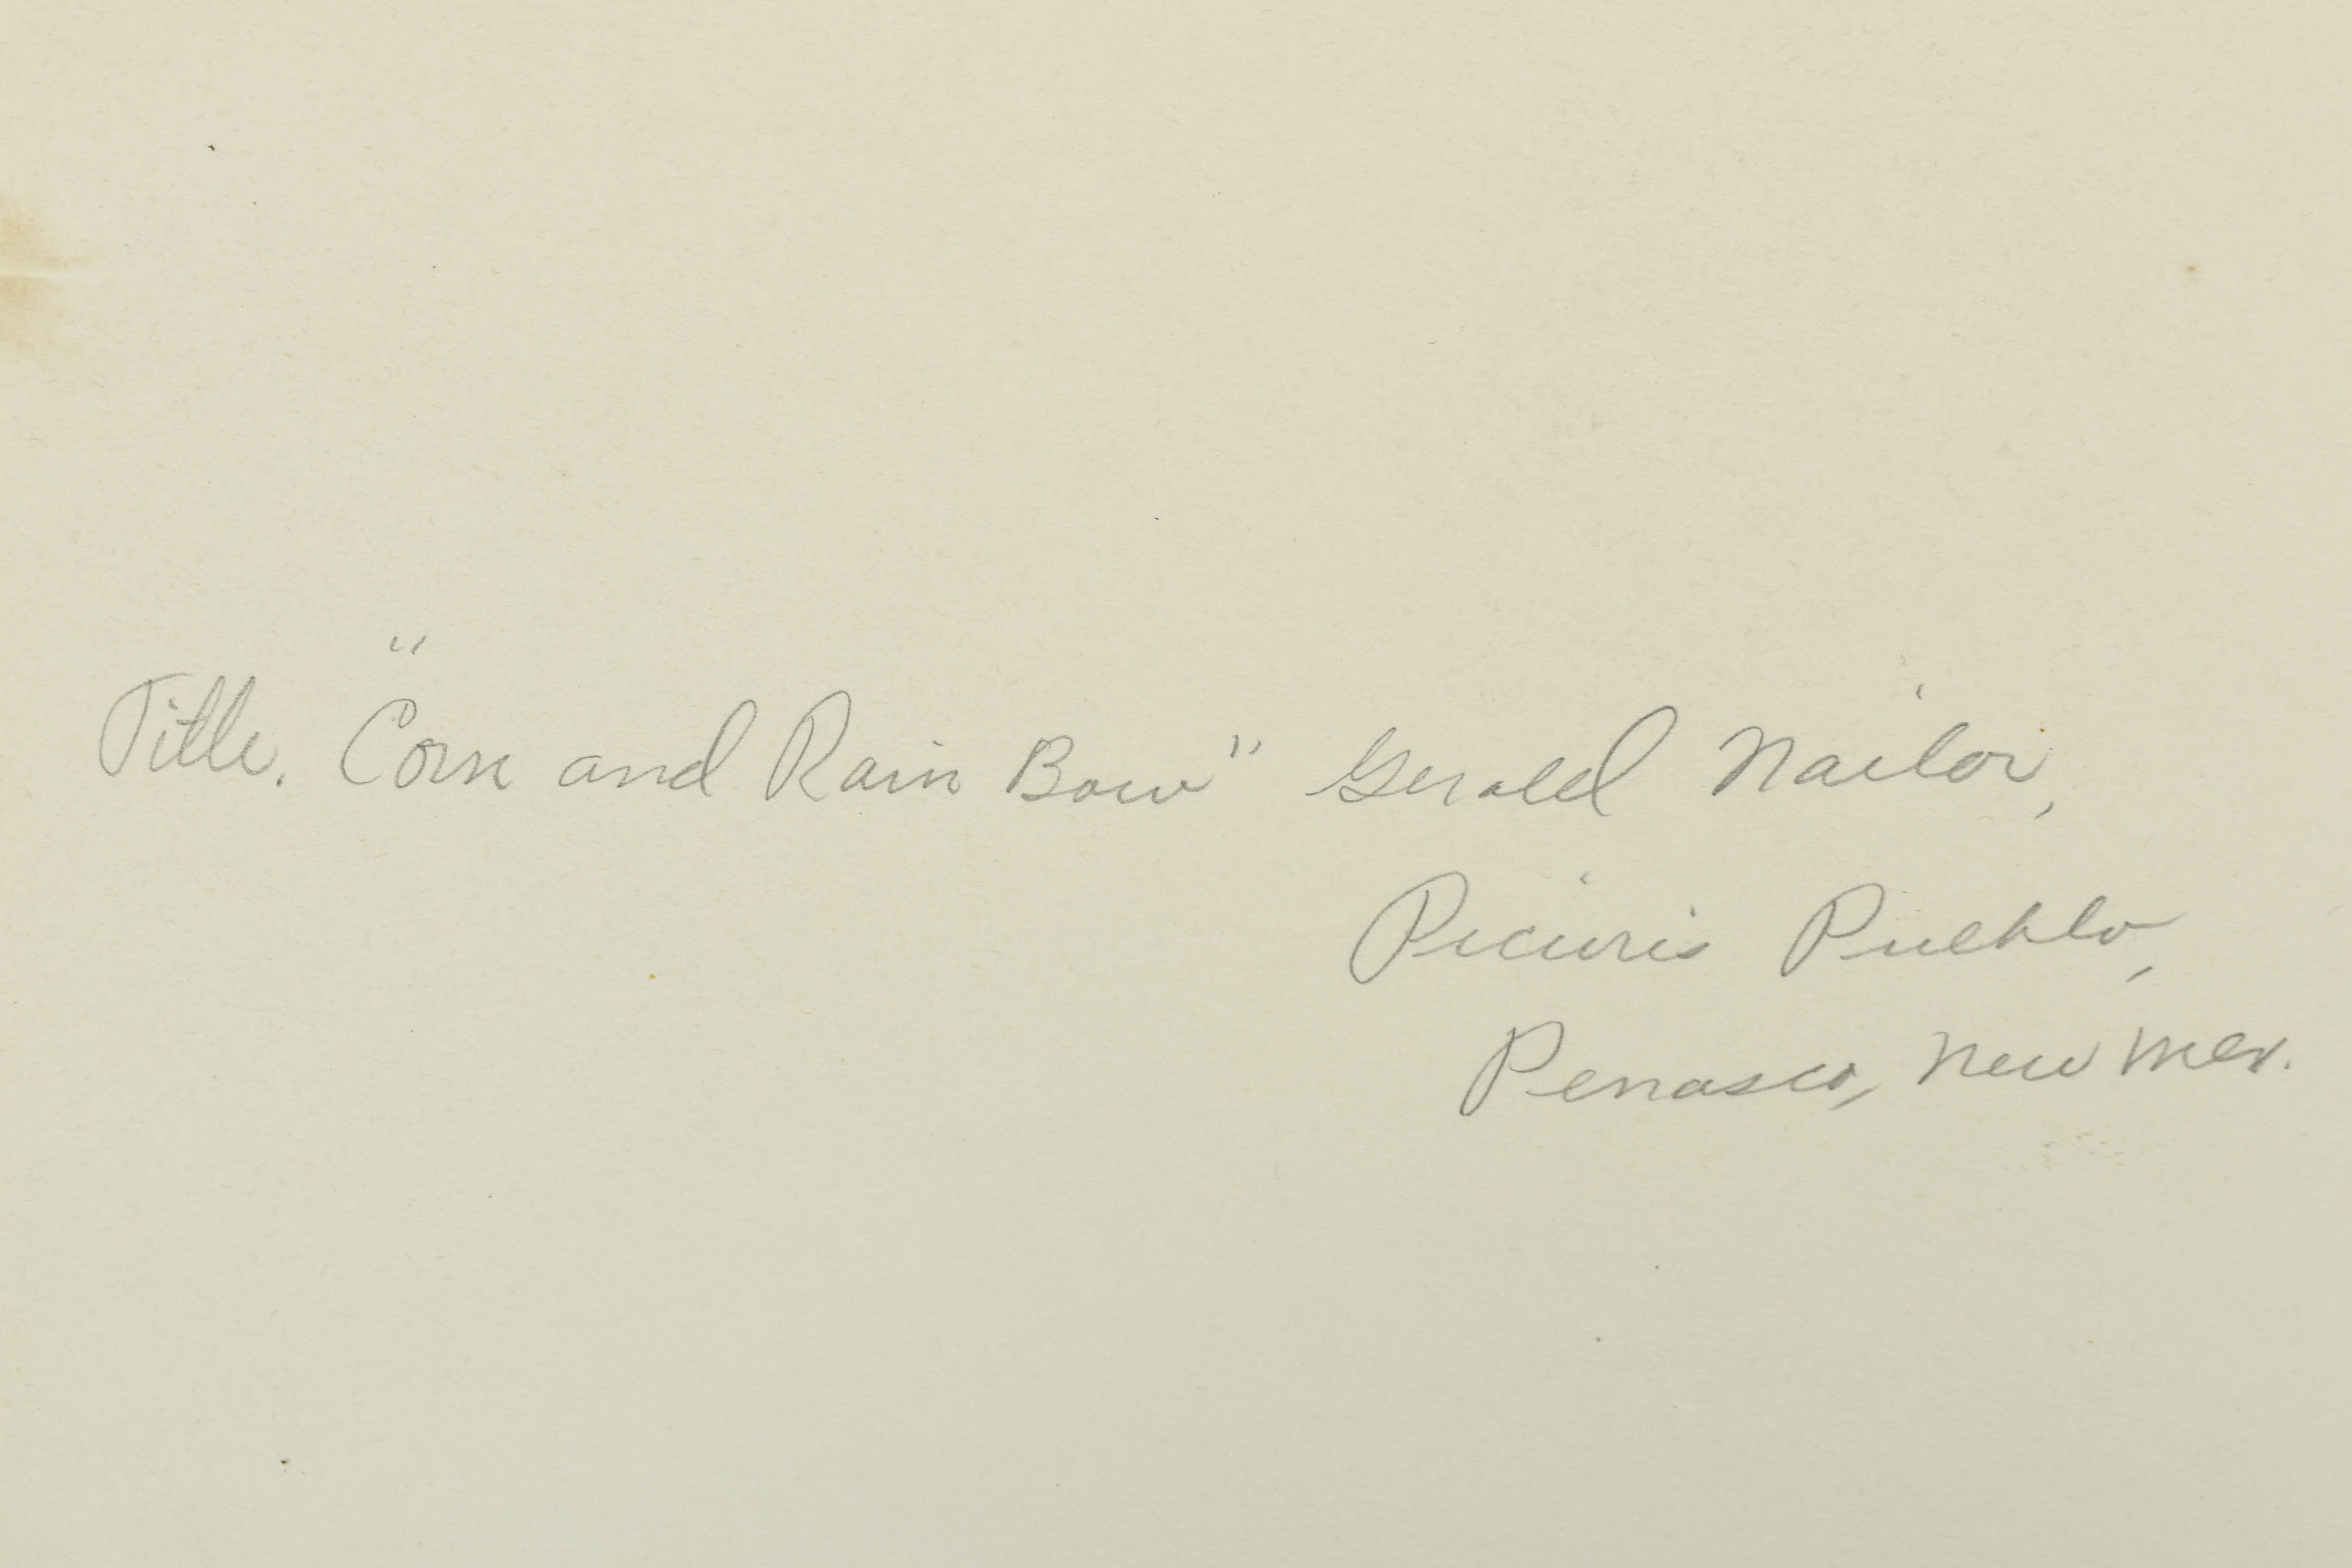 Title. "Corn and Rain Bow" Gerald Nailor,
Picuris Pueblo,
Penasco, New Mex.